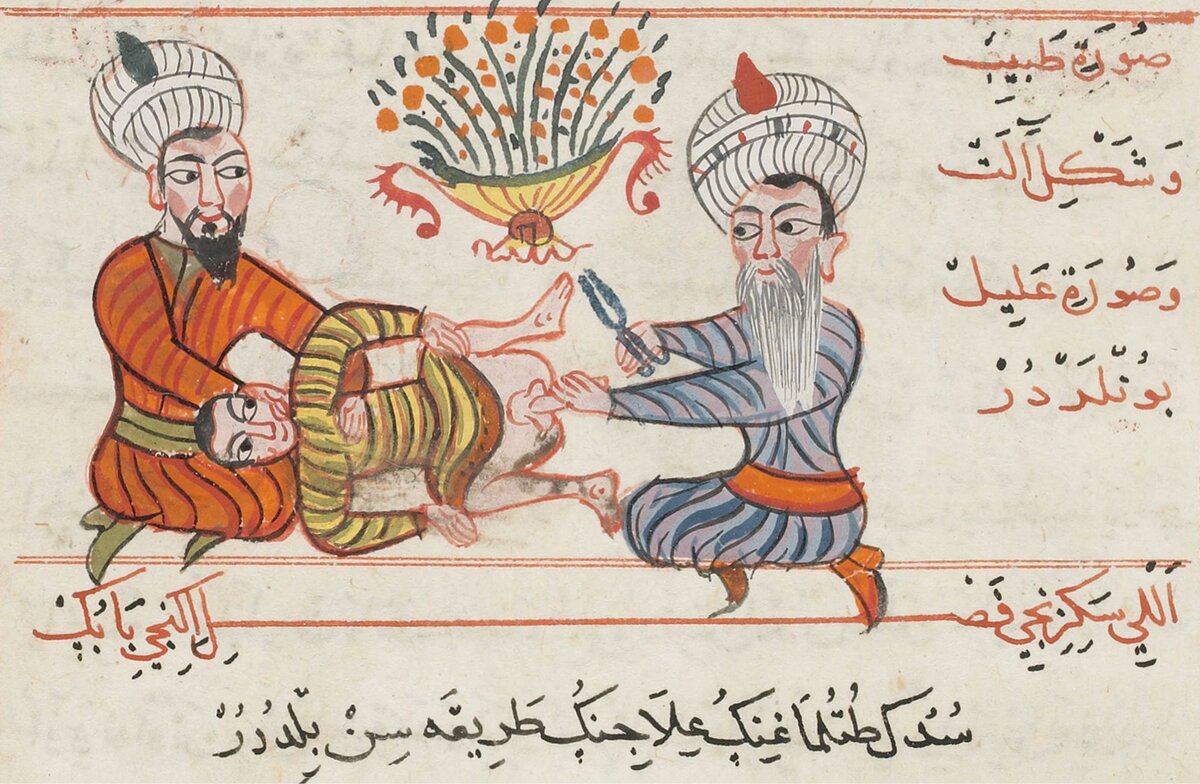 صُورَة طَبِيبْ
وَشَكْلِ آلَتْ
وَصُورَة عَلِيلْ
بُونْلَرْدُرْ
اَللِّي سَكِزِنْجِي فَصْلِ اِكِنْجِي بَابُكْ
سُدُكْ طُتُلْمَاغِنُكْ عِلَاجِنُكْ طَرِيقَه سِنْ بِلْدُرُرْ